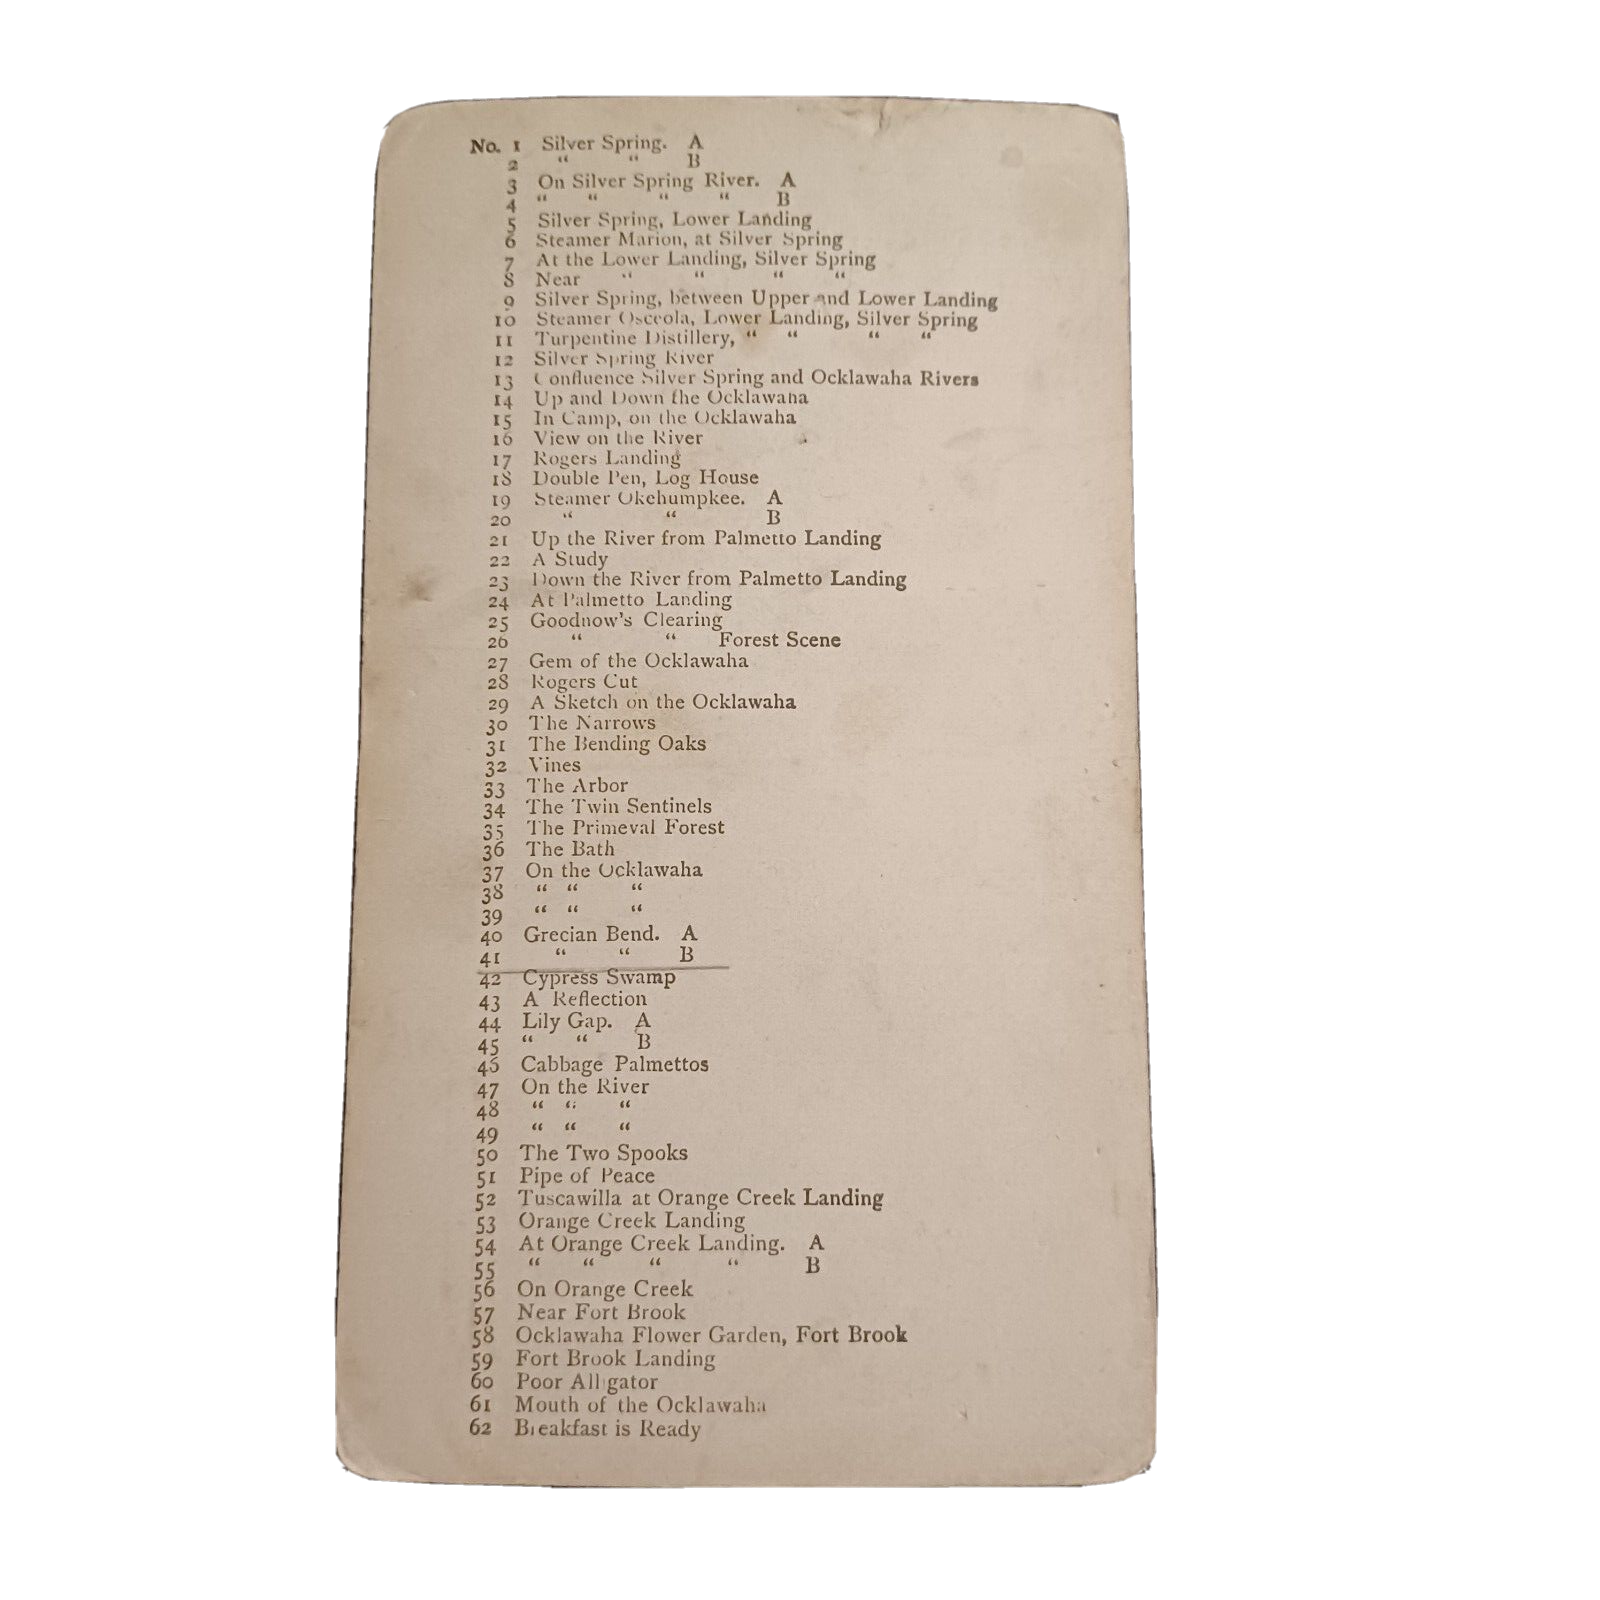 No. 1 Silver Spring. A
2 “ “ B
3 On Silver Spring River. A
4 “ “ “ “ B
5 Silver Spring, Lower Landing
6 Steamer Marion, at Silver Spring
7 At the Lower Landing, Silver Spring
8 Near “ “ “ “
9 Silver Spring, between Upper and Lower Landing
10 Steamer Osceola, Lower Landing, Silver Spring
11 Turpentine Distillery, “ “ “ “
12 Silver Spring River
13 Confluence Silver Spring and Ocklawaha Rivers
14 Up and Down the Ocklawaha
15 In Camp, on the Ocklawaha
16 View on the River
17 Rogers Landing
18 Double Pen, Log House
19 Steamer Okehumpkee. A
20 “ “ B
21 Up the River from Palmetto Landing
22 A Study
23 Down the River from Palmetto Landing
24 At Palmetto Landing
25 Goodnow's Clearing
26 “ “ Forest Scene
27 Gem of the Ocklawaha
28 Rogers Cut
29 A Sketch on the Ocklawaha
30 The Narrows
31 The Bending Oaks
32 Vines
33 The Arbor
34 The Twin Sentinels
35 The Primeval Forest
36 The Bath
37 On the Ocklawaha
38 “ “ “
39 “ “ “
40 Grecian Bend. A
41 “ “ B
42 Cypress Swamp
43 A Reflection
44 Lily Gap. A
45 “ “ B
46 Cabbage Palmettos
47 On the River
48 “ “ “
49 “ “ “
50 The Two Spooks
51 Pipe of Peace
52 Tuscawilla at Orange Creek Landing
53 Orange Creek Landing
54 At Orange Creek Landing. A
55 “ “ “ “ B
56 On Orange Creek
57 Near Fort Brook
58 Ocklawaha Flower Garden, Fort Brook
59 Fort Brook Landing
60 Poor Alligator
61 Mouth of the Ocklawaha
62 Breakfast is Ready